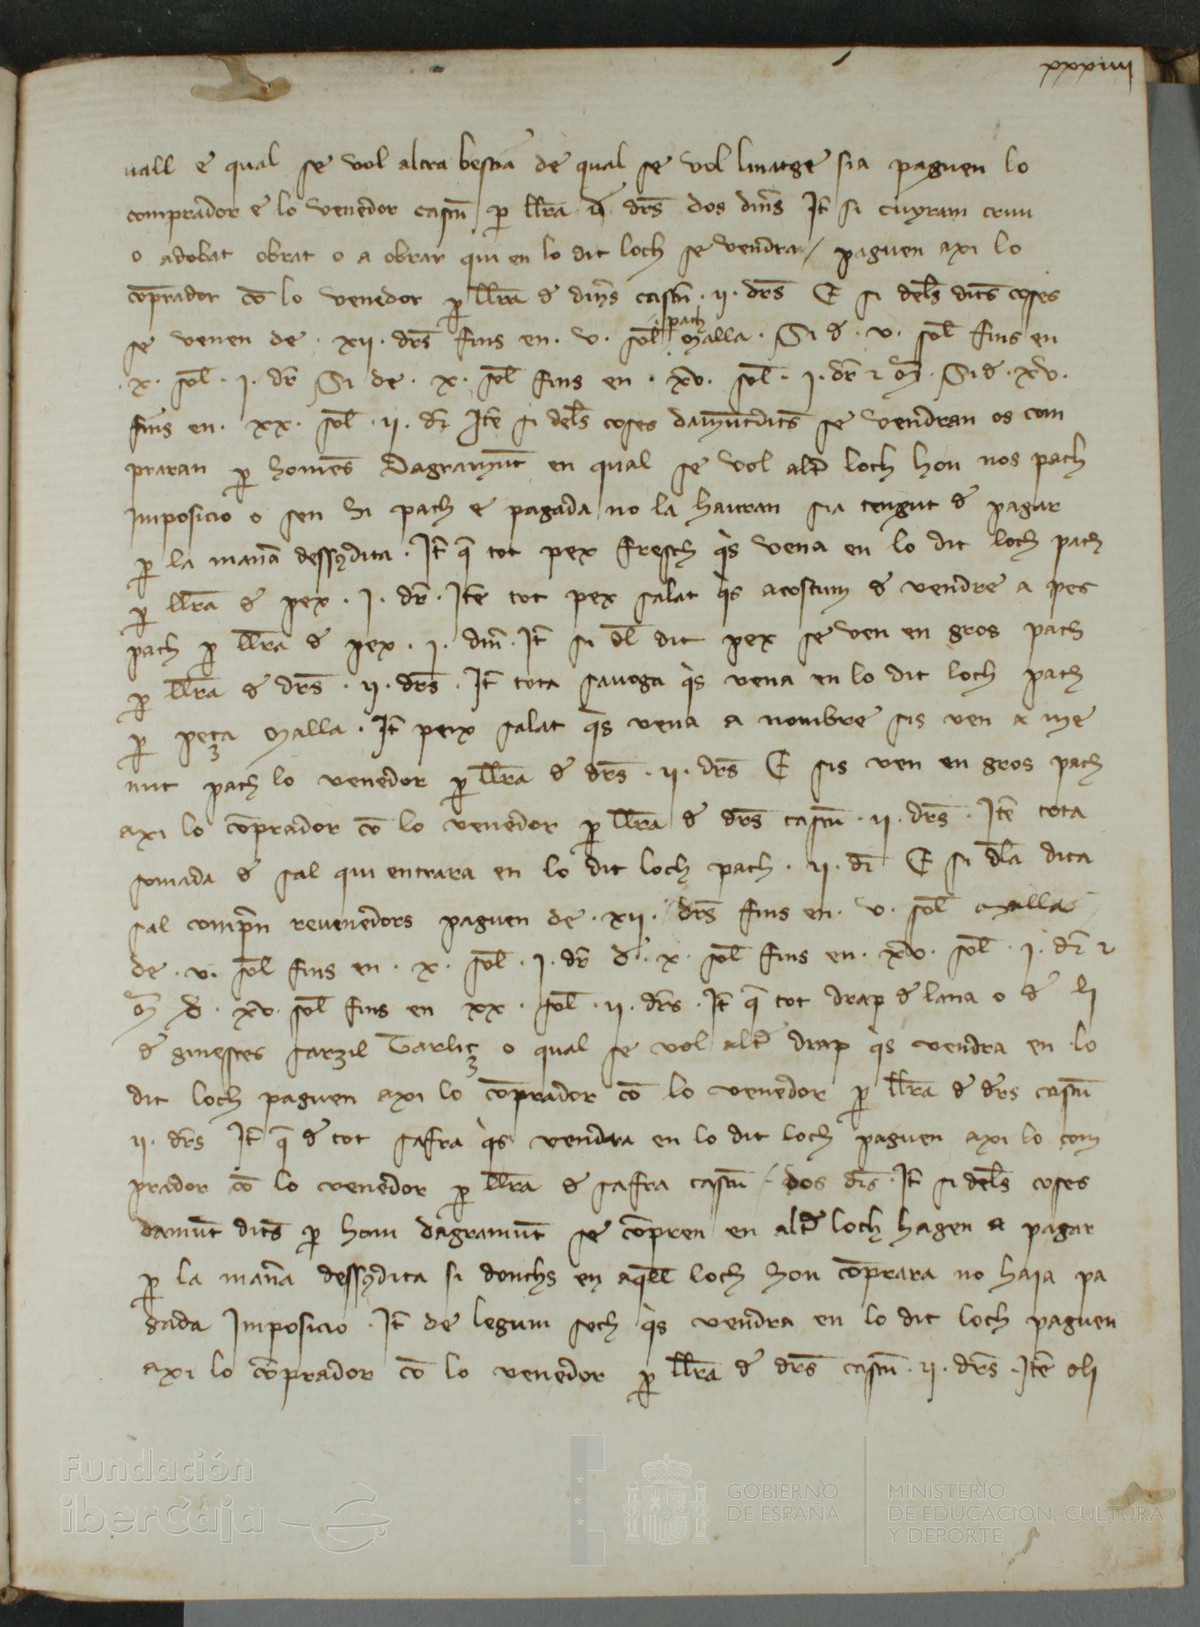 xxxiiii
uall e qual se vol altra bestia de qual se vol linatge sia paguen lo
comprador e lo venedor cascũ p llr̃a d drs̃ dos dines̃ Jt̃ si cuyram cruu
o adobat obrat o a obrar qui en lo dit loch se vendra / paguen axi lo
cõprador cõ lo venedor p llr̃a d dines̃ cascũ · ii · drs̃ E si dels̃ dits coses
se venen de · xii · drs̃ fins en · v · sol̃ pach malla · Si d · v · sol̃ fins en
· x · sol̃ · i · dr̃ Si de · x · sol̃ fins en · xv · sol̃ · i · dr̃ z m̃ · Si d · xv ·
fins en · xx · sol̃ · ii · dr̃ Jtẽ si dels̃ coses damũtdits se vendran os com
praran p homẽs dagramũt en qual se vol altr̃ loch hon nos pach
Imposicio o sen hi pach e pagada no la hauran sia tengut d pagar
p la manã dessusdita · Jt̃ q̃ tot pex fresch qs vena en lo dit loch pach
p llr̃a d pex · i · dr̃ · Jtẽ tot pex salat qs acostum d vendre a pes
pach p llr̃a d pex · i · din̄ · Jt̃ si dl̃ dit pex se ven en gros pach
p llr̃a d drs̃ · ii · drs̃ · Jt̃ tota sauoga qs vena en lo dit loch pach
p peça malla · Jt̃ peix salat qs vena a nombre sis ven a me
nut pach lo venedor p llr̃a d drs̃ · ii · drs̃ E sis ven en gros pach
axi lo cõprador cõ lo venedor p llr̃a d drs̃ cascũ · ii · drs̃ · Jtẽ tota
somada d sal qui entrara en lo dit loch pach · ii · dr̃ E si dl̃a dita
sal compr̃n reuenedors paguen de · xii · drs̃ fins en · v · sol̃ malla
de · v · sol̃ fins en · x · sol̃ · i · dr̃ d · x · sol̃ fins en · xv · sol̃ · i · dr̃ z
m̃ d · xv · sol̃ fins en xx · sol̃ · ii · drs̃ · Jt̃ q̃ tot drap d lana o d li
d ginestes sarzil Tarliç o qual se vol altr̃ drap qs vendra en lo
dit loch paguen axi lo cõprador cõ lo venedor p llr̃a d drs̃ cascũ
ii · drs̃ Jt̃ q̃ d tot safra qs vendra en lo dit loch paguen axi lo com
prador cõ lo venedor p llr̃a d safra cascũ / dos drs̃ · Jt̃ si dels̃ coses
damũt dits p hom dagramũt se cõpren en altr̃ loch hagen a pagar
p la manã dessusdita si donchs en aq̃ll loch hon cõprara no haia pa
gada Imposicio · Jt̃ de legum sech qs vendra en lo dit loch paguen
axi lo cõprador cõ lo venedor p llr̃a d drs̃ cascũ · ii · drs̃ · Jtẽ oli
Fundación
iberCaja
GOBIERNO
DE ESPAÑA
MINISTERIO
DE EDUCACIÓN, CULTURA
Y DEPORTE